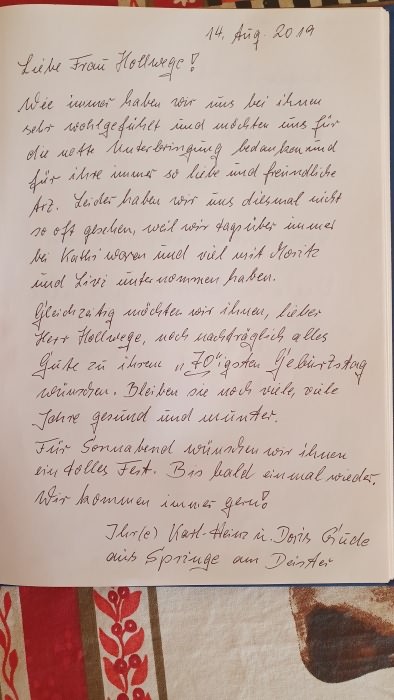 14. Aug. 2019
Liebe Frau Hollwege!
Wie immer haben wir uns bei ihnen
sehr wohlgefühlt und möchten uns für
die nette Unterbringung bedanken und
für ihre immer so liebe und freundliche
Art. Leider haben wir uns diesmal nicht
so oft gesehen, weil wir tagsüber immer
bei Kathi waren und viel mit Moritz
und Livi unternommen haben.
Gleichzeitig möchten wir ihnen, lieber
Herr Hollwege, noch nachträglich alles
Gute zu ihrem „70"igsten Geburtstag
wünschen. Bleiben sie noch viele, viele
Jahre gesund und munter.
Für Sonnabend wünschen wir ihnen
ein tolles Fest. Bis bald einmal wieder.
Wir kommen immer gern!
Ihr(e) Karl-Heinz u. Doris Gude
aus Springe am Deister